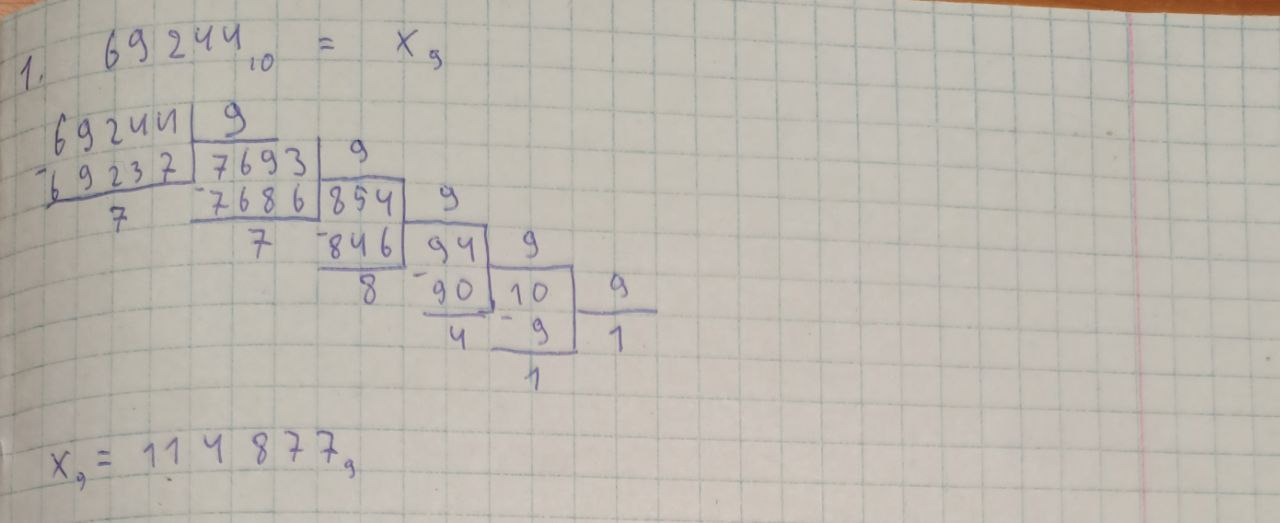 1. 69244₁₀ = x₉
69244 9
-69237 7693 9
7 -7686 854 9
7 -846 94 9
8 -90 10 9
4 -9 1
1
x₉ = 114877₉